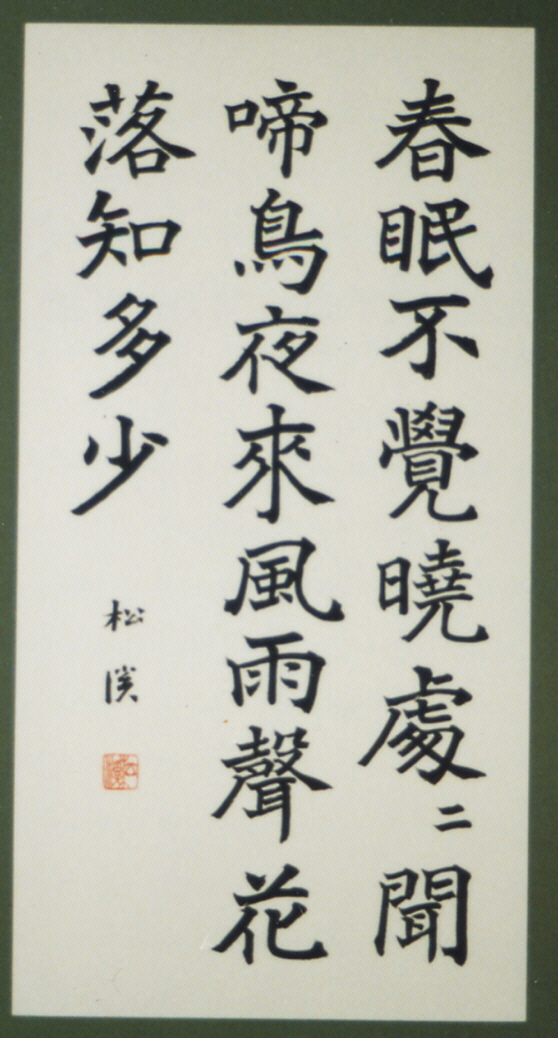 春眠不覺曉處〻聞
啼鳥夜來風雨聲花
落知多少
松溪